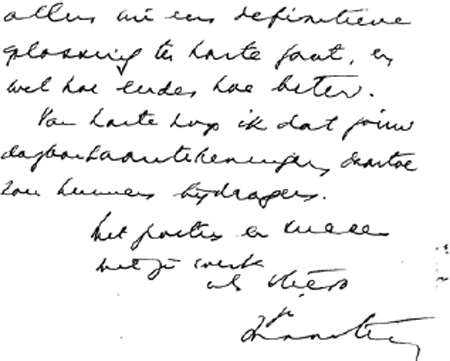 allen um een definitieve
oplossing ter harte gaat, en
wel hoe eerder hoe beter.
Van harte hoop ik dat jouw
dagboekaantekeningen daartoe
zou kunnen bijdragen.
het
met je werk
als steeds
je